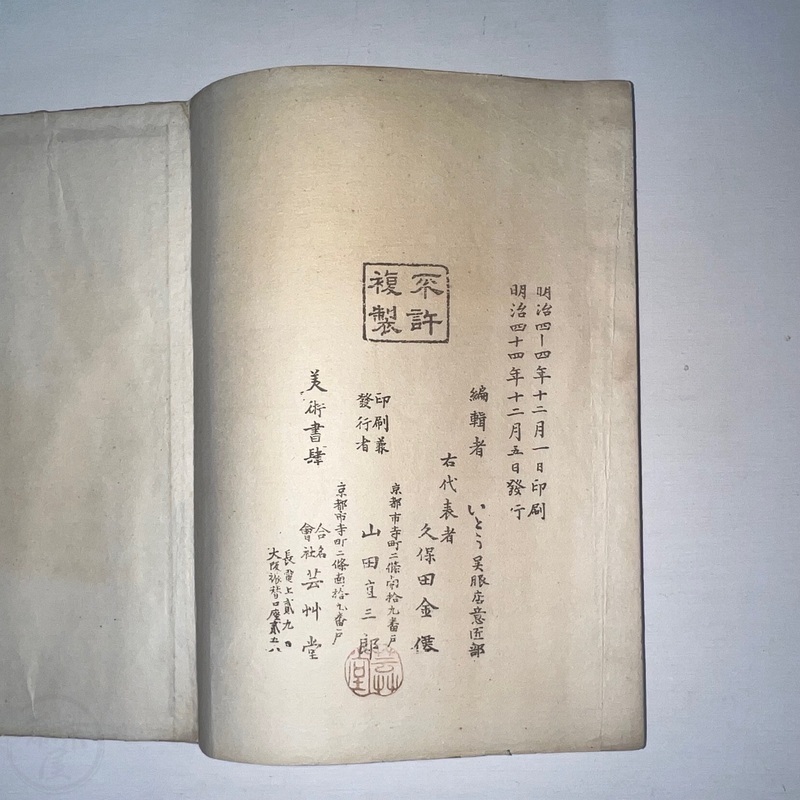 明治四十四年十二月一日印刷
明治四十四年十二月五日發行
不許
複製
編輯者
いとう呉服店意匠部
右代表者
久保田金僊
印刷兼
發行者
京都市寺町二條南拾九番戸
山田直三郎
京都市寺町二條南拾九番戸
美術書肆
合名
會社
芸艸堂
長電上貳九
大阪振替口座貳五八
芸艸堂